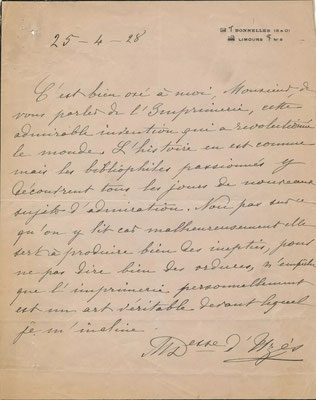 25-4-28
BONNELLES (S & O)
LIMOURS N° 6
C'est bien osé à moi, Monsieur, de
vous parler de l'Imprimerie, cette
admirable invention qui a revolutionné
le monde. L'histoire en est connue
mais les bibliophiles passionnés y
découvrent tous les jours de nouveaux
sujets d'admiration. Non pas sur ce
qu'on y lit car malheureusement elle
sert à produire bien des inepties, pour
ne pas dire bien des ordures, n'empêche
que l'imprimerie personnellement
est un art véritable devant lequel
je m'incline.
Desse d'Uzès